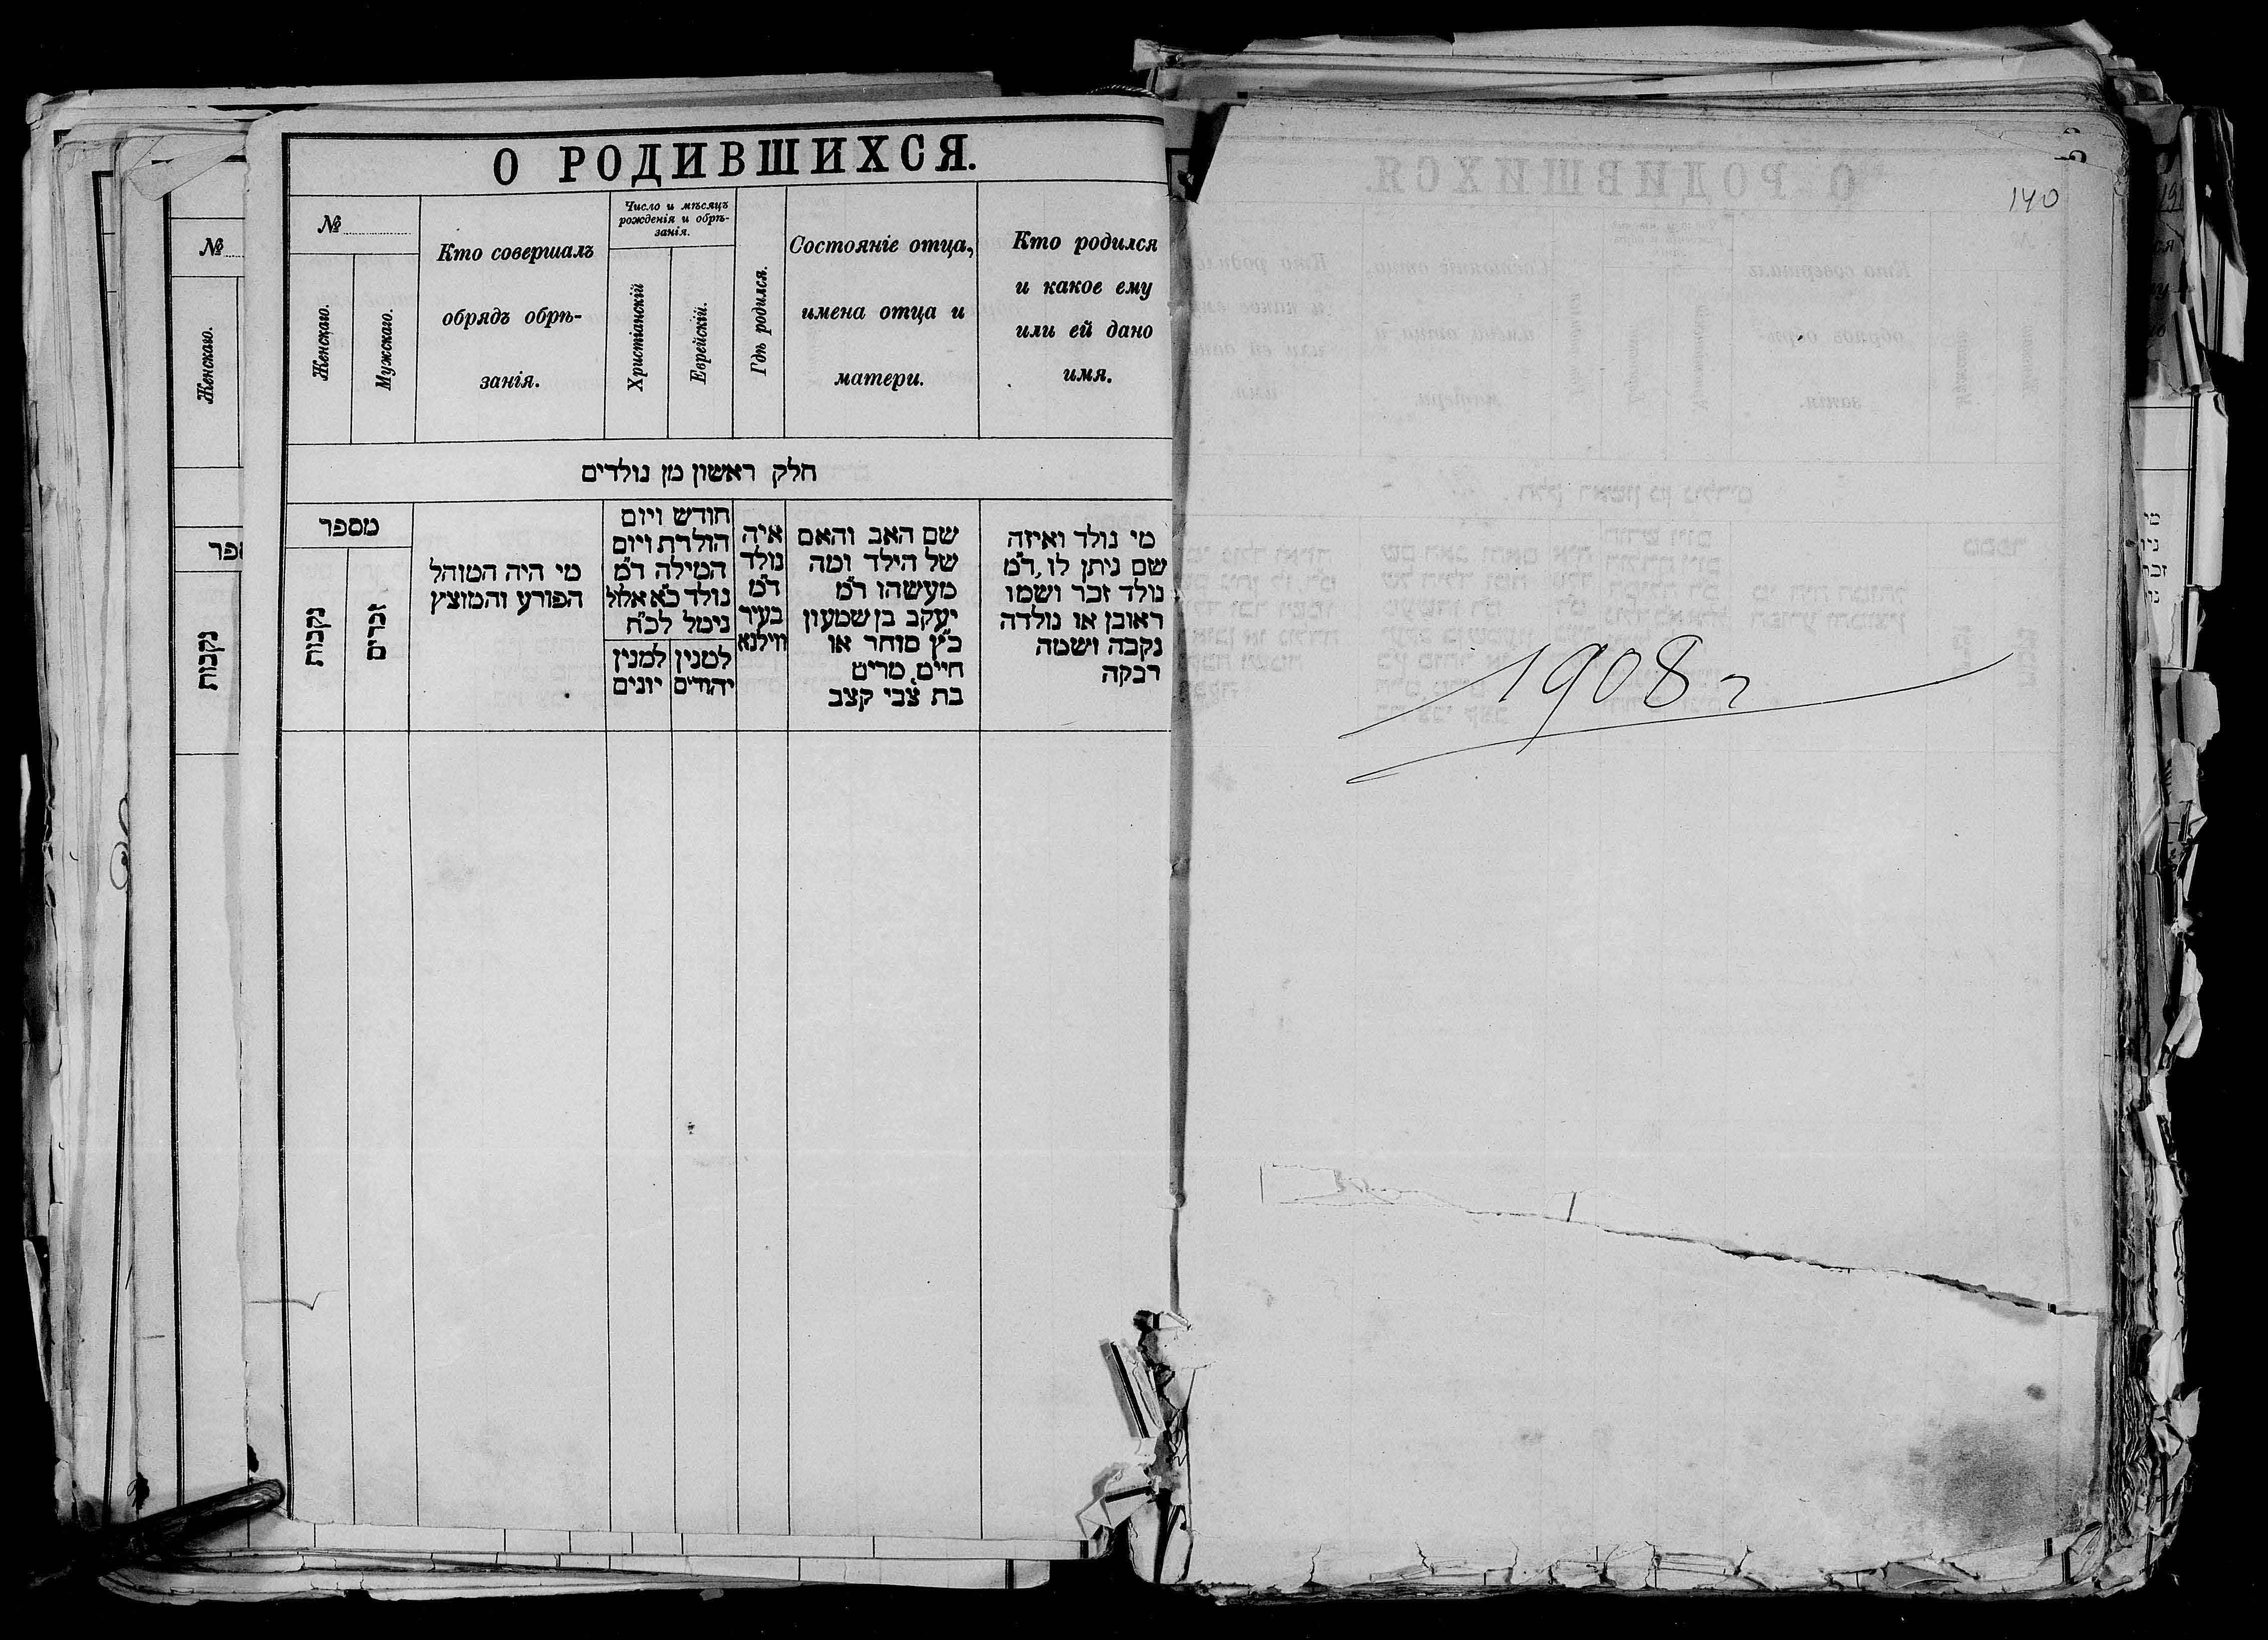 О РОДИВШИХСЯ.
№
Женскаго.
Мужскаго.
Кто совершалъ
обрядъ обрѣ-
занія.
Число и мѣсяцъ
рожденія и обрѣ-
занія.
Христіанскій
Еврейскій.
Гдѣ родился.
Состояніе отца,
имена отца и
матери.
Кто родился
и какое ему
или ей дано
имя.
חלק ראשון מן נולדים
מספר
נקבות
זכרים
מי היה המוהל
הפורע והמוצץ
חודש ויום
הולדת ויום
המילה ד״מ
נולד כ״א אלול
נימל לכ״ח
למנין
יונים
למנין
יהודים
איה
נולד
ד״מ
בעיר
ווילנא
שם האב והאם
של הילד ומה
מעשהו ד״מ
יעקב בן שמעון
כ״ץ סוחר או
חיים, מרים
בת צבי קצב
מי נולד ואיזה
שם ניתן לו, ד״מ
נולד זכר ושמו
ראובן או נולדה
נקבה ושמה
רבקה
№
Женскаго.
נקבות
140
1908 г